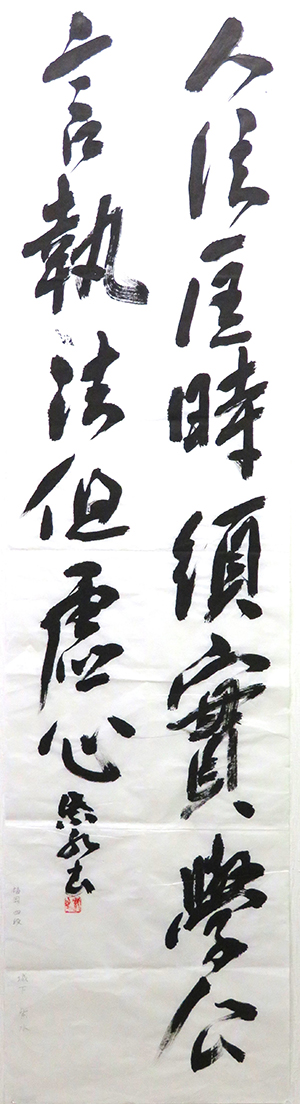 人匡時須實學公
言執法但虛心